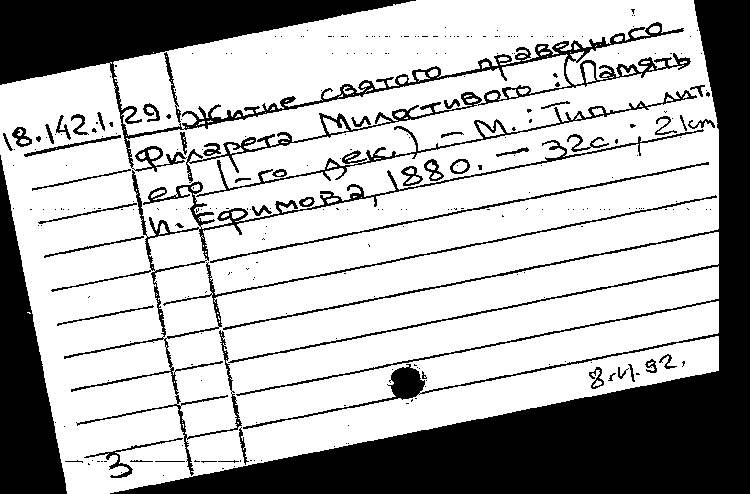 18.142.1.29. Житие святого праведного
Филарета Милостивого : (Память
его 1-го дек.) . - М. : Тип. и лит.
И. Ефимова, 1880. - 32с. ; 21cm.
3